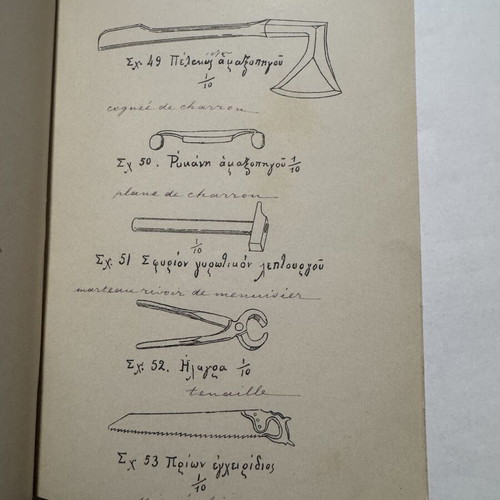 Σχ. 49 Πέλεκυς ἁμαξοπηγοῦ
1/10
cognée de charron
Σχ 50. Ῥυκάνη ἁμαξοπηγοῦ 1/10
plane de charron
1/10
Σχ. 51 Σφυρίον γυρωτικόν λεπτουργοῦ
marteau rivoir de menuisier
Σχ. 52. Ηλαγρα 1/10
tenaille
Σχ 53 Πρίων ἐγχειρίδιος
1/10